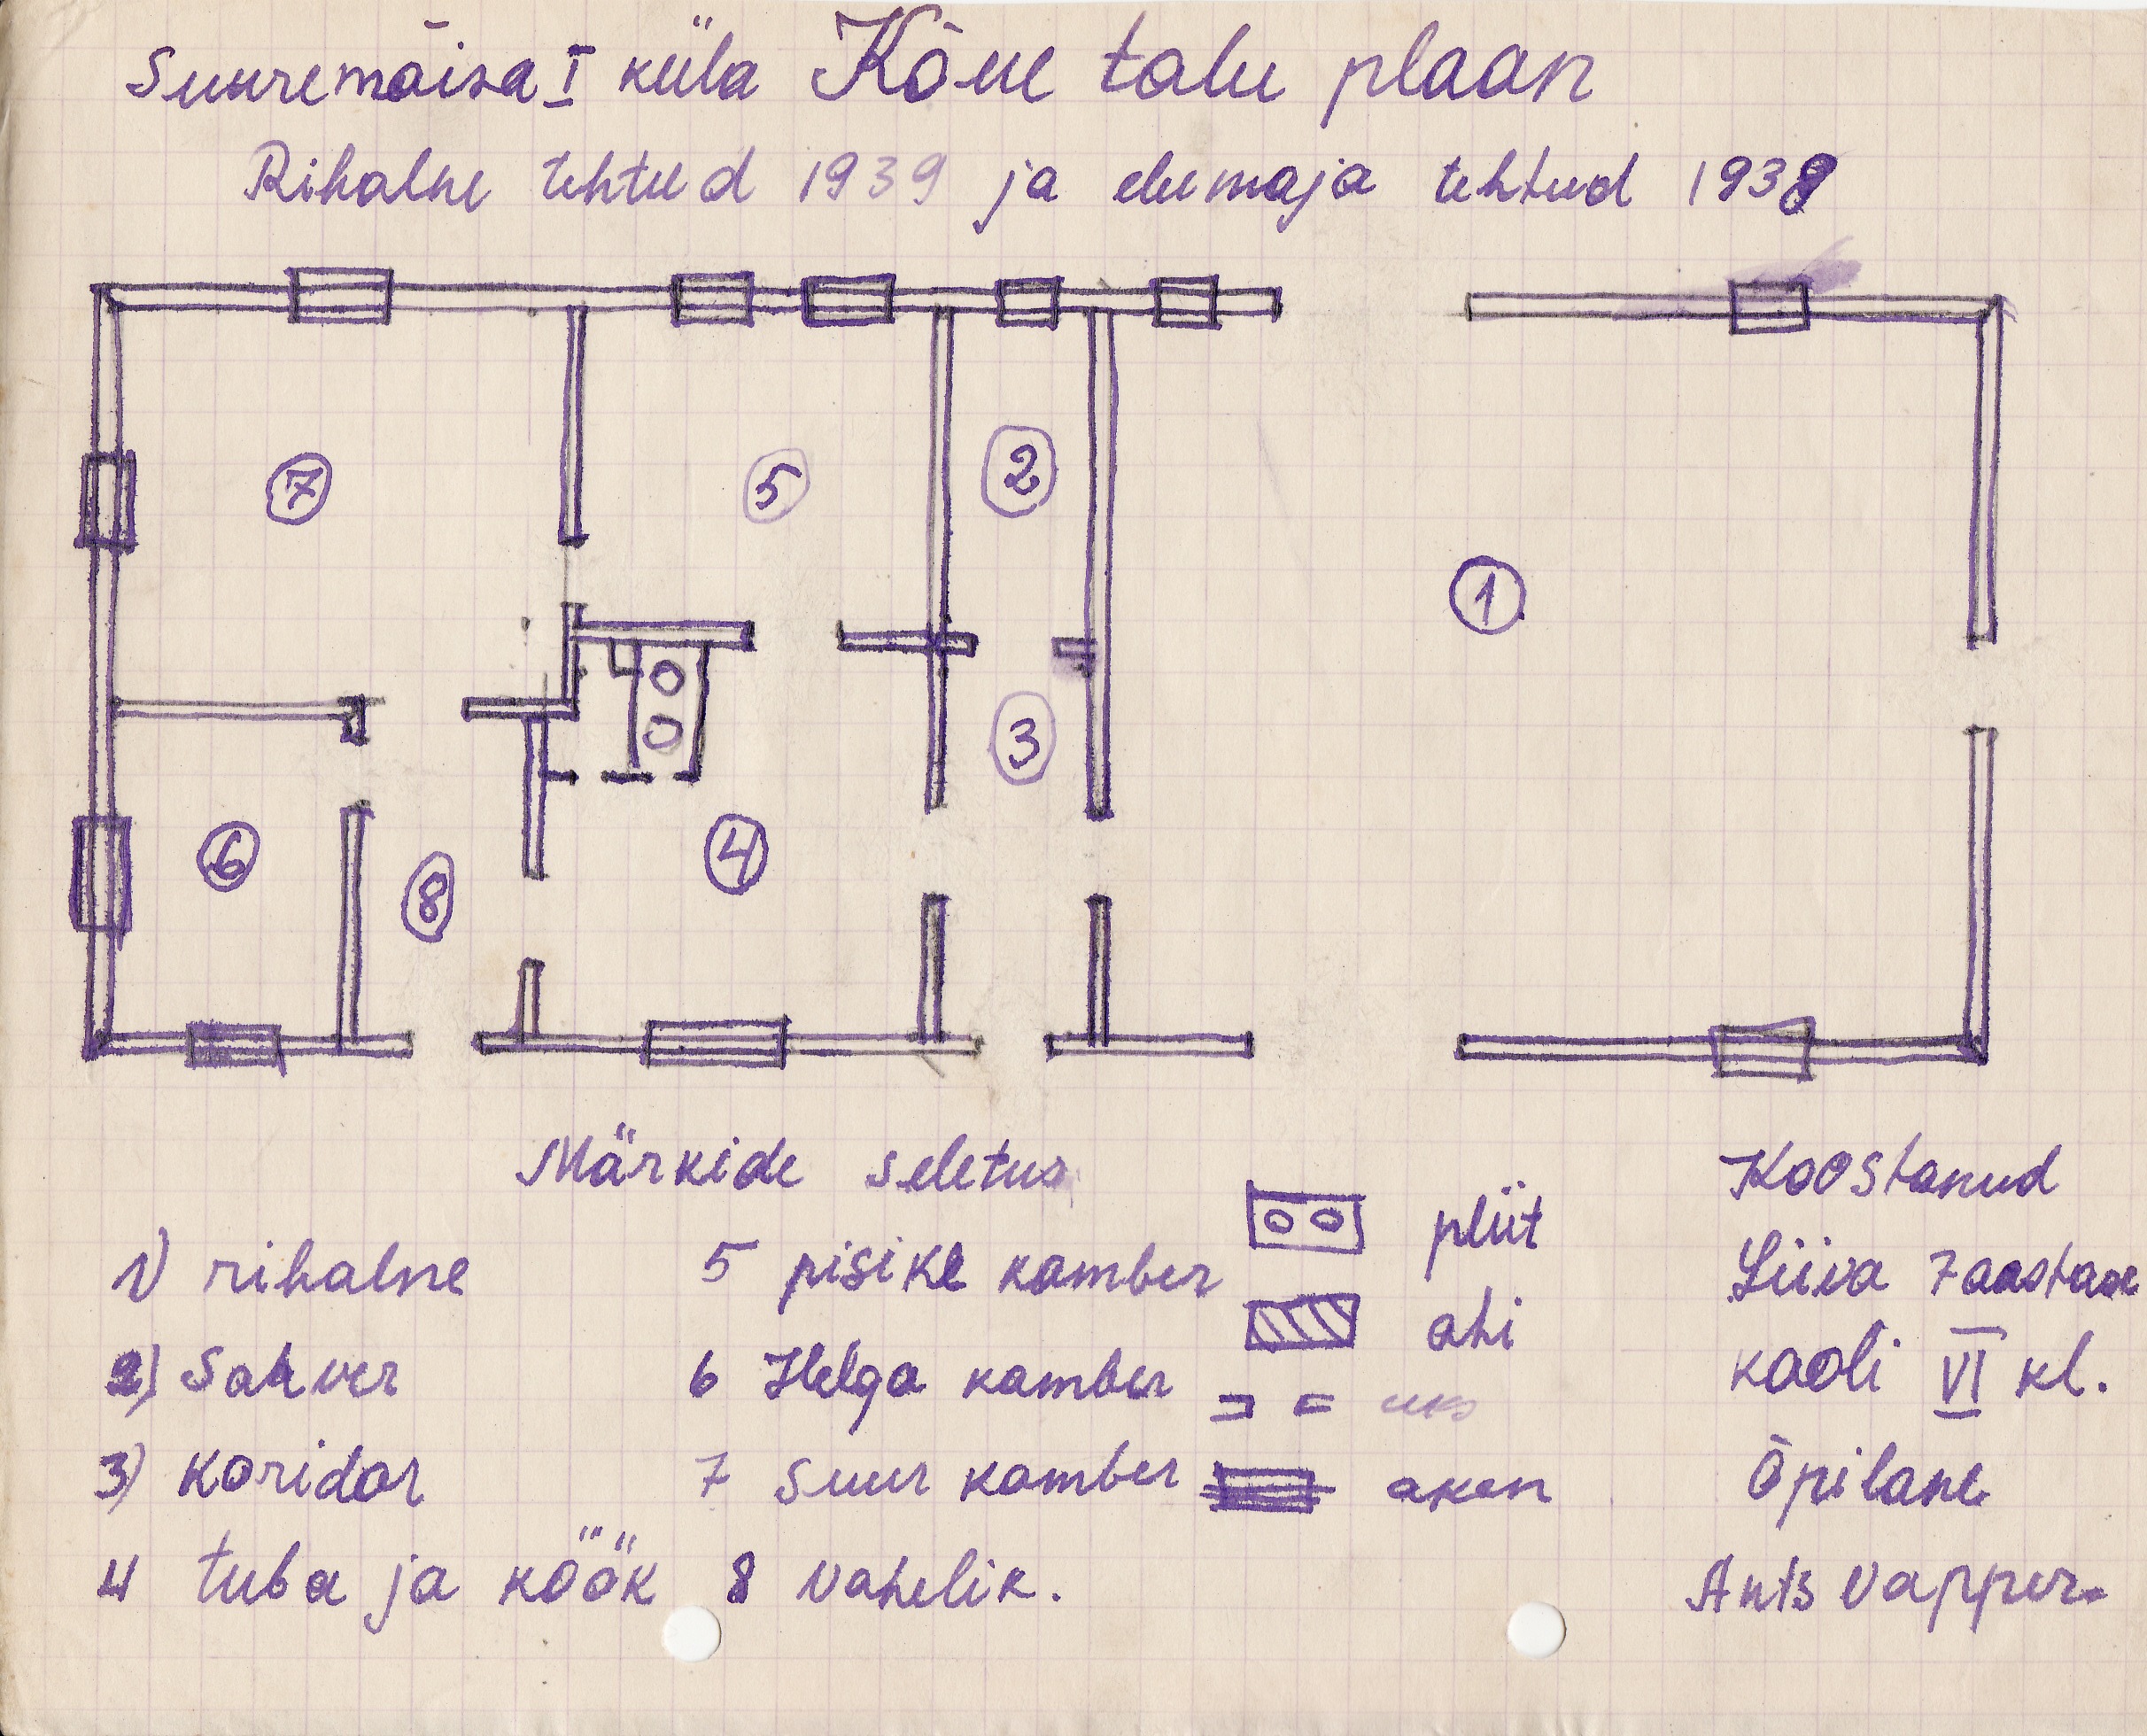 Suuremõisa I küla Kõue talu plaan
Rihalne tehtud 1939 ja elumaja tehtud 1938
7
5
2
1
3
6
8
4
Märkide seletus
1) rihalne
2) Sahver
3) koridor
4 tuba ja köök
5 pisike kamber
6 Helga kamber
7 Suur kamber
8 vahelik.
pliit
ahi
uks
aken
Koostanud
Liiva 7 aastase
kooli VI kl.
Õpilane
Ants Vapper.